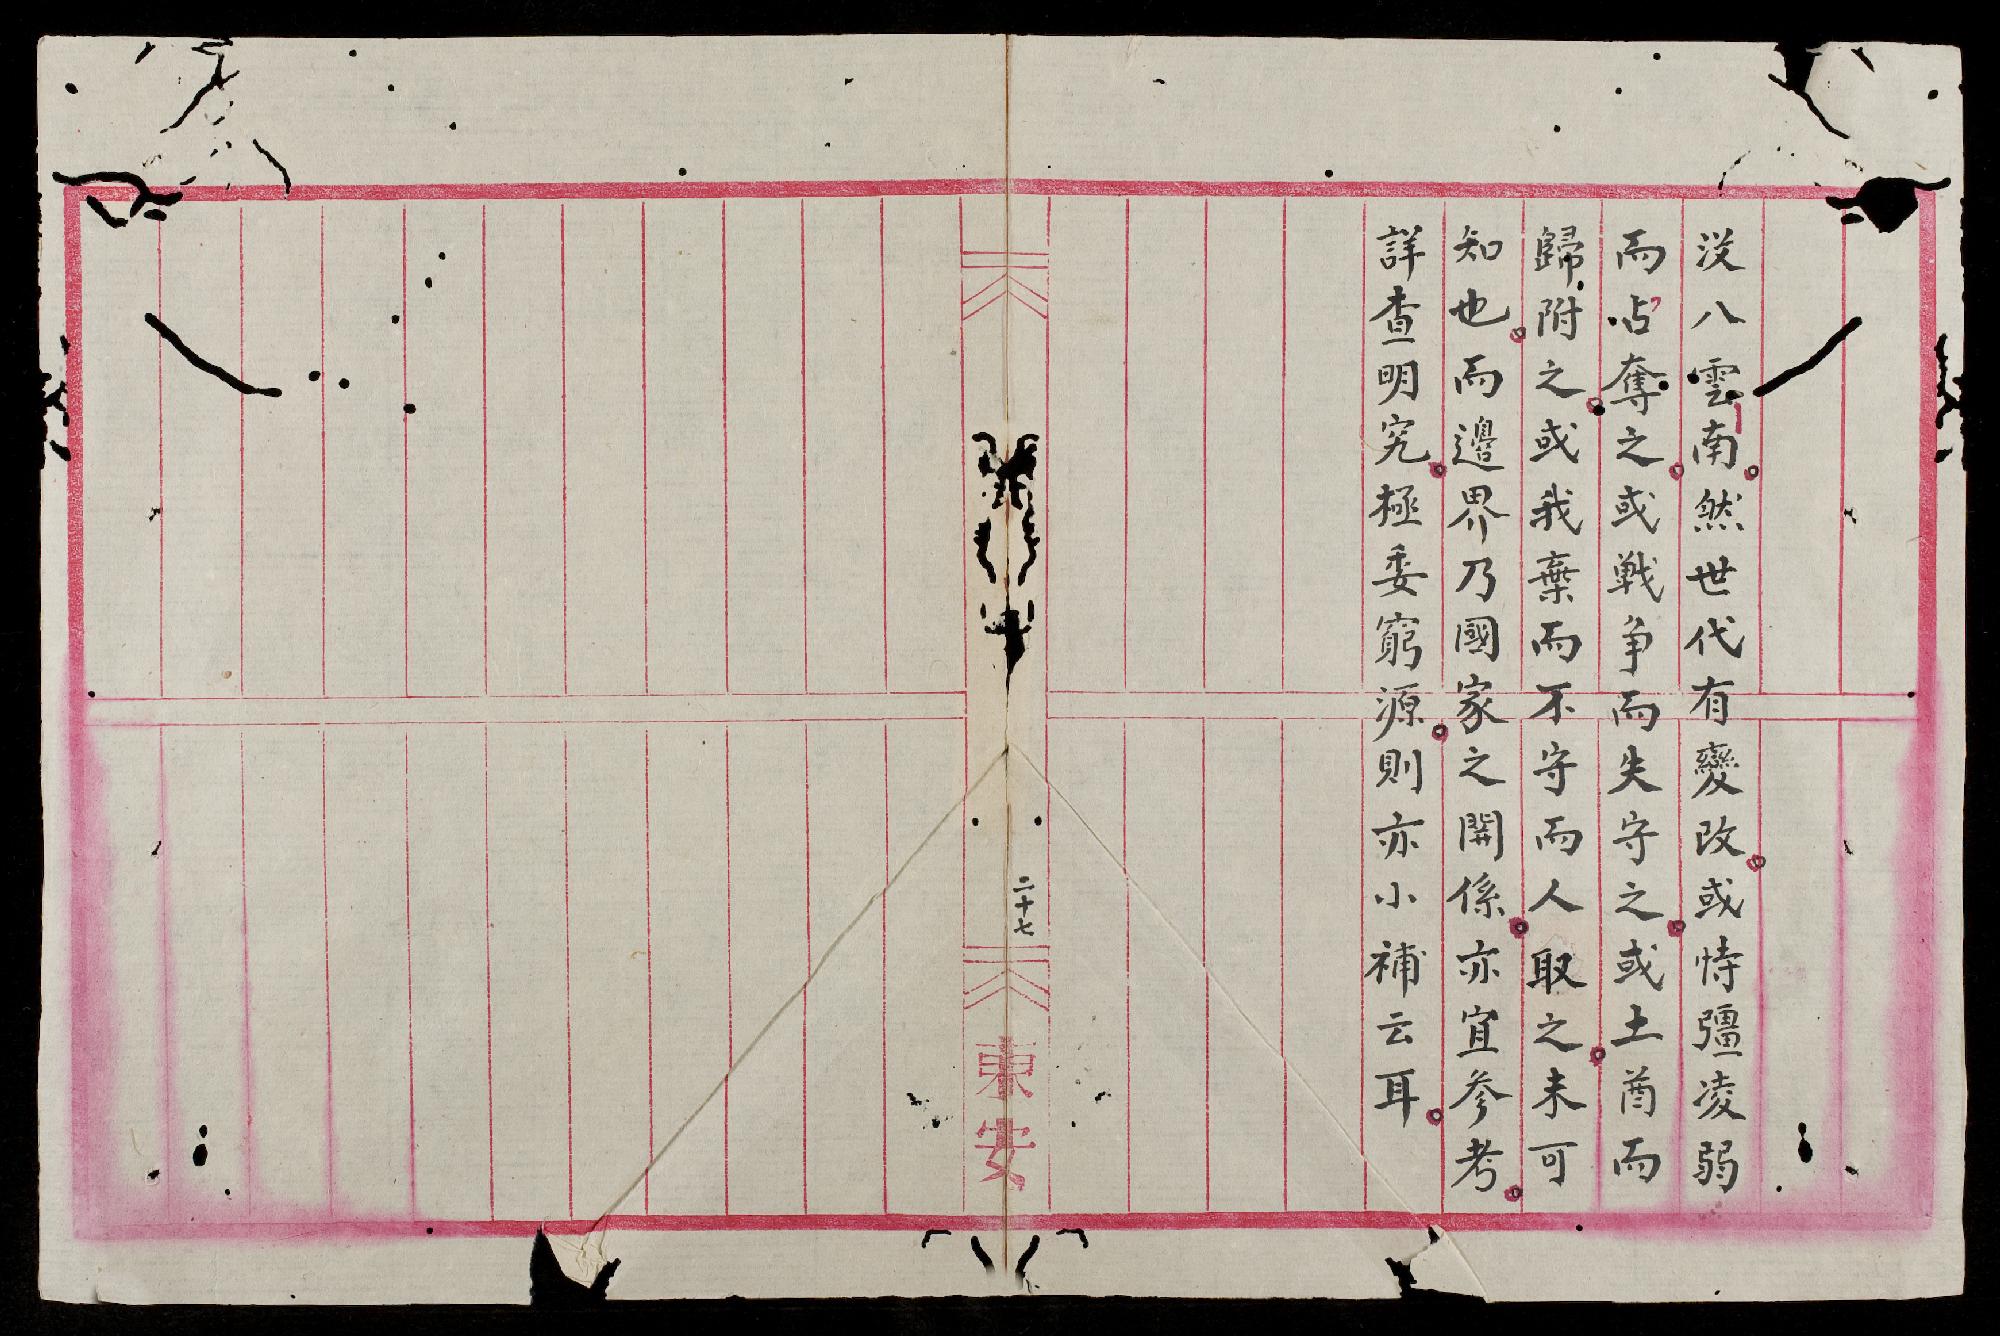 沒八雲南然世代有變改或恃彊凌弱
而占奪之或戰争而失守之或土酋而
歸附之或我棄而不守而人取之未可
知也而邊界乃國家之関係亦宜參考
詳查明究極委窮源則亦小補云耳
二十七
東安